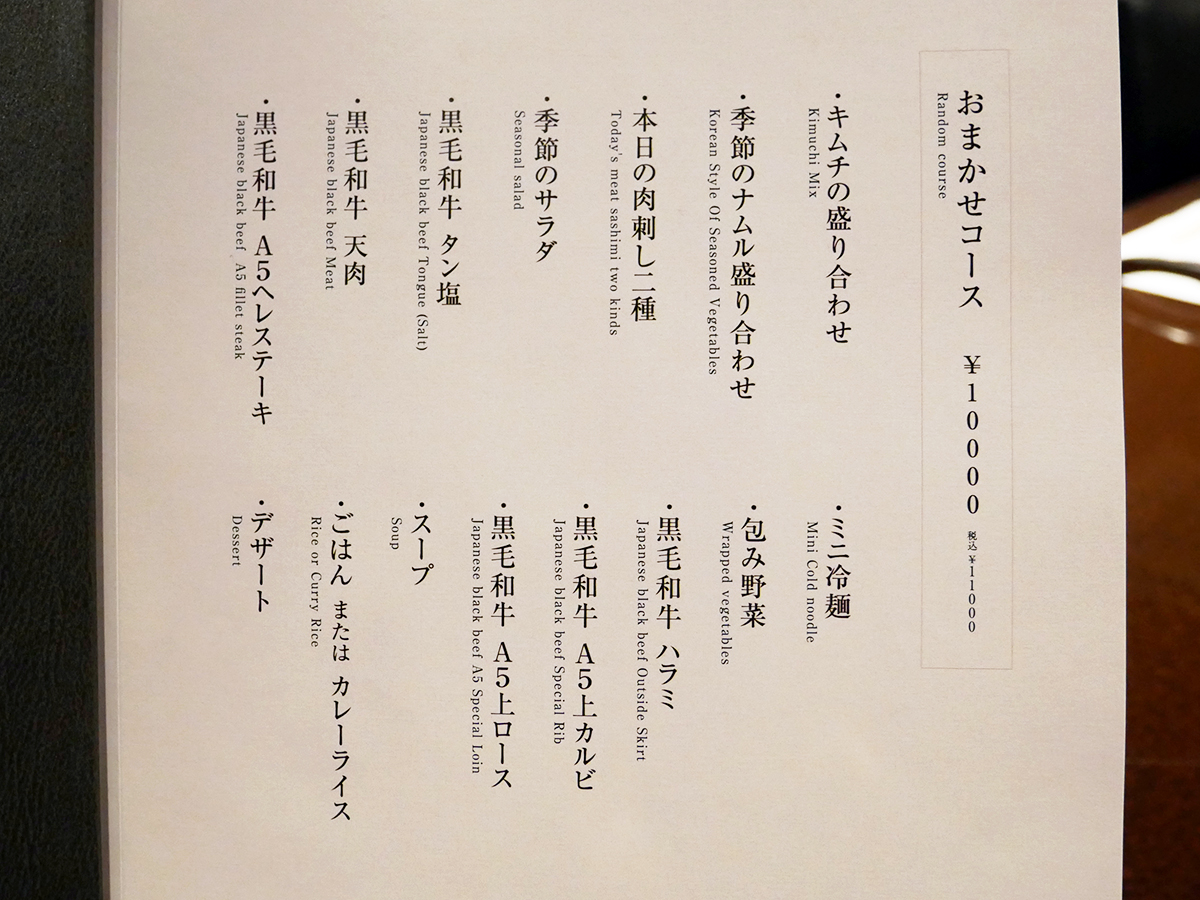 おまかせコース ¥10000 税込¥11000
Random course
・キムチの盛り合わせ
Kimuchi Mix
・季節のナムル盛り合わせ
Korean Style Of Seasoned Vegetables
・本日の肉刺し二種
Today's meat sashimi two kinds
・季節のサラダ
Seasonal salad
・黒毛和牛 タン塩
Japanese black beef Tongue (Salt)
・黒毛和牛 天肉
Japanese black beef Meat
・黒毛和牛 A5ヘレステーキ
Japanese black beef A5 fillet steak
・ミニ冷麺
Mini Cold noodle
・包み野菜
Wrapped vegetables
・黒毛和牛 ハラミ
Japanese black beef Outside Skirt
・黒毛和牛 A5上カルビ
Japanese black beef Special Rib
・黒毛和牛 A5上ロース
Japanese black beef A5 Special Loin
・スープ
Soup
・ごはん または カレーライス
Rice or Curry Rice
・デザート
Dessert